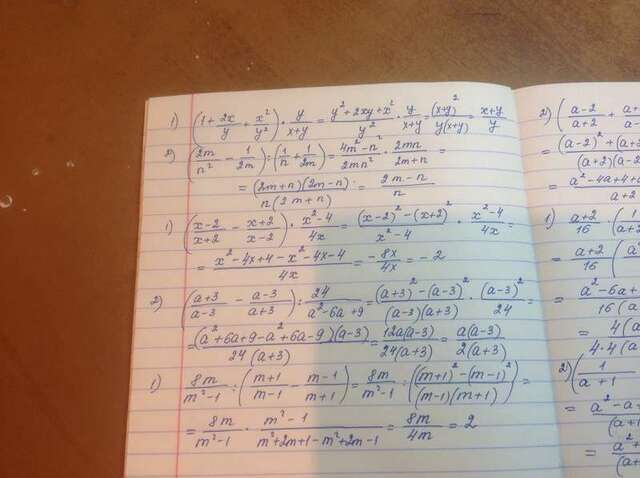 1) (1 + 2x/y + x²/y²) · y/(x+y) = (y² + 2xy + x²)/y² · y/(x+y) = (x+y)²/(y(x+y)) = (x+y)/y
2) (2m/n² - 1/(2m)) : (1/n + 1/(2m)) = (4m² - n²)/(2mn²) · 2mn/(2m+n) =
= (2m+n)(2m-n)/(n(2m+n)) = (2m-n)/n
1) ((x-2)/(x+2) - (x+2)/(x-2)) · (x²-4)/(4x) = ((x-2)² - (x+2)²)/(x²-4) · (x²-4)/(4x) =
= (x² - 4x + 4 - x² - 4x - 4)/(4x) = -8x/(4x) = -2
2) ((a+3)/(a-3) - (a-3)/(a+3)) : 24/(a² - 6a + 9) = ((a+3)² - (a-3)²)/((a-3)(a+3)) · (a-3)²/24 =
= (a² + 6a + 9 - a² + 6a - 9)(a-3)/(24(a+3)) = 12a(a-3)/(24(a+3)) = a(a-3)/(2(a+3))
1) 8m/(m²-1) : ((m+1)/(m-1) - (m-1)/(m+1)) = 8m/(m²-1) : ((m+1)² - (m-1)²)/((m-1)(m+1)) =
= 8m/(m²-1) · (m²-1)/(m² + 2m + 1 - m² + 2m - 1) = 8m/(4m) = 2
2) ((a-2)/(a+2) +
= (a-2)² + (a+
(a+2)(a-2)
= a² - 4a + 4 +
a+2
1) (a+2)/16 ·
= (a+2)/16
= a² - 6a +
16(a
= 4(a
4·4(a
2) (1/(a+1)
= a² - a +
(a+1
= a² +
(a+